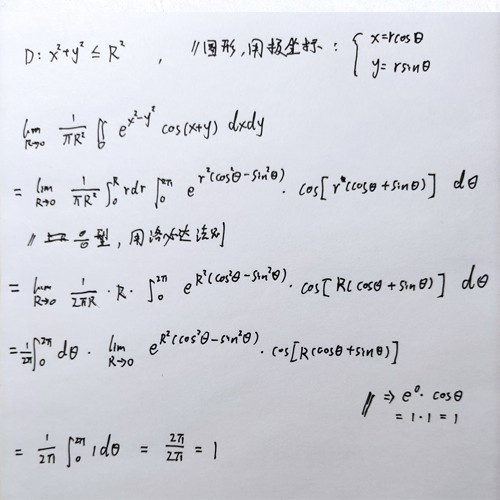 D: x²+y² ≤ R² , // 圆形,用极坐标: { x=rcosθ
y=rsinθ
lim R→0 1/πR² ∬_D e^(x²-y²) cos(x+y) dxdy
= lim R→0 1/πR² ∫₀^R rdr ∫₀^2π e^(r²(cos²θ-sin²θ)) · cos[r(cosθ+sinθ)] dθ
// 0/0型,用洛必达法则
= lim R→0 1/2πR · R · ∫₀^2π e^(R²(cos²θ-sin²θ)) · cos[R(cosθ+sinθ)] dθ
= 1/2π ∫₀^2π dθ · lim R→0 e^(R²(cos²θ-sin²θ)) · cos[R(cosθ+sinθ)]
// ⇒ e⁰ · cosθ
= 1·1 = 1
= 1/2π ∫₀^2π 1dθ = 2π/2π = 1